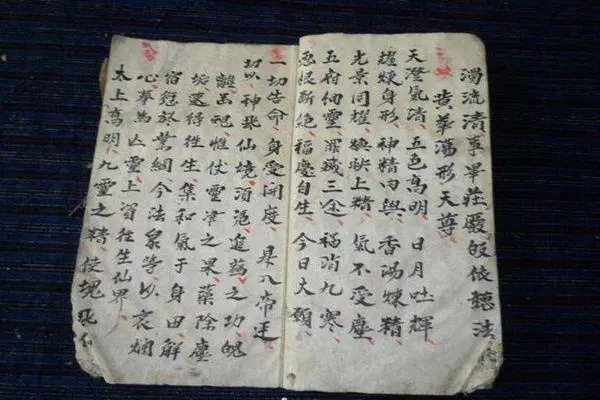 濁流清事畢莊嚴皈依聽法
黃華蕩形天尊
天澄氣清 五色高明 日月吐輝
耀煉身形 神精内與 香湯煉精
光景同耀 上精 氣不受塵
五府納靈 罪滅三塗 福消九寒
惡根斷絕 福慶自生 今日大願
一切告命 身受開度 帝廷
切以 神 仙境 須 進 之功 魄
離 冠 惟仗 靈津之果 藥除塵
垢 還得往生 集和氣于身田 解
宿愆於業網 今法眾等 以哀憫
心 奉為亡靈 上資往生仙界
太上高明 九靈之精